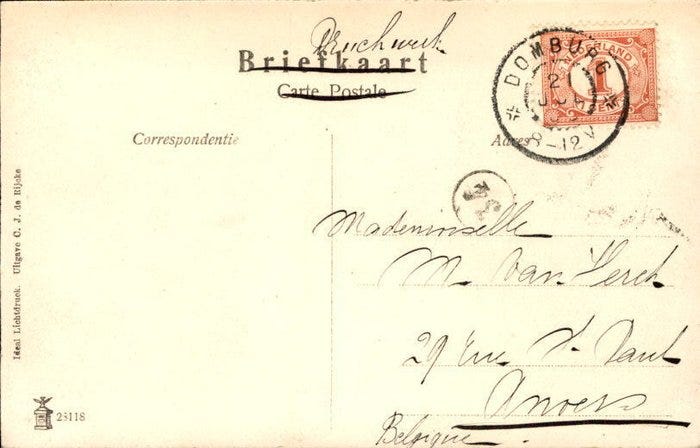 Drukwerk
Briefkaart
Carte Postale
Correspondentie
Adres
DOMBURG
21
8-12V
NEDERLAND
1
Mademoiselle
M. Van
29 rue St Paul
Anvers
Belgique
Ideal Lichtdruck. Uitgave C. J. de Rijcke
23118